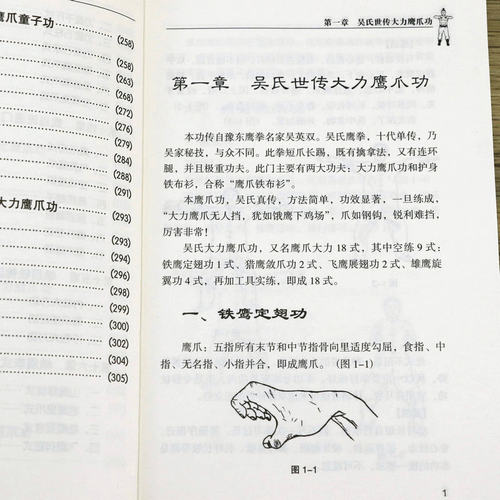 鹰爪童子功
(258)
(258)
(263)
(268)
(272)
(276)
(279)
(284)
(288)
(291)
大力鹰爪功
(293)
(293)
(294)
(296)
(298)
(299)
(300)
(302)
(304)
(305)
第一章 吴氏世传大力鹰爪功
第一章 吴氏世传大力鹰爪功
本功传自豫东鹰拳名家吴英双。吴氏鹰拳，十代单传，乃
吴家秘技，与众不同。此拳短爪长踢，既有擒拿法，又有连环
腿，并且极重功夫。此门主要有两大功夫：大力鹰爪功和护身
铁布衫，合称“鹰爪铁布衫”。
本鹰爪功，吴氏真传，方法简单，功效显著，一旦练成，
“大力鹰爪无人挡，犹如饿鹰下鸡场”，爪如钢钩，锐利难挡，
厉害非常！
吴氏大力鹰爪功，又名鹰爪大力 18 式，其中空练 9 式：
铁鹰定翅功 1 式、猎鹰敛爪功 2 式、飞鹰展翅功 2 式、雄鹰旋
翼功 4 式，再加工具实练，即成 18 式。
一、铁鹰定翅功
鹰爪：五指所有末节和中节指骨向里适度勾屈，食指、中
指、无名指、小指并合，即成鹰爪。（图 1-1）
图 1-1
1